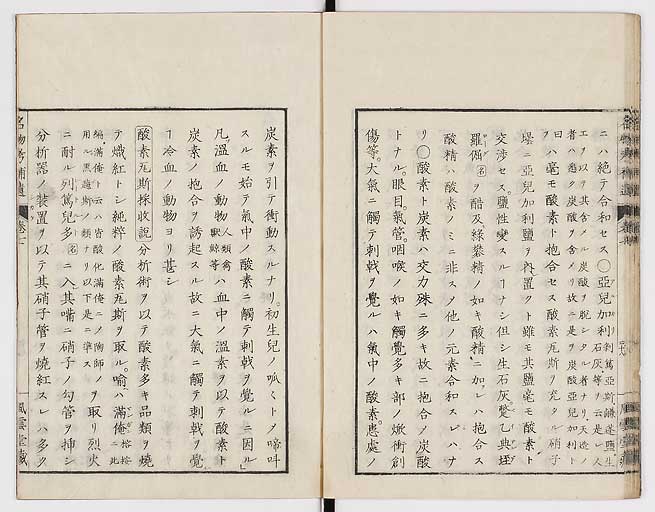 ニハ絶テ合和セス○亞兒加利
エヲ以テ其含メル炭酸ヲ脱シタル者ナリ天造ノ
者ハ悉ク炭酸ヲ含メリ故ニ是ヲ炭酸亞兒加利ト
曰ハ毫モ酸素ト抱合セス酸素瓦斯ヲ充タル硝子
壜ニ亞兒加利鹽ヲ内置クト雖モ其鹽毫モ酸素ト
交渉セス鹽性變スルーナシ但シ生石灰
羅傴名ヲ醋及綠礬精ノ如キ酸精ニ加レハ抱合ス
酸精ハ酸素ノミニ非スタ他ノ元素合和スレハナ
リ○酸素ト炭素ハ交力殊ニ多キ故ニ抱合ノ炭酸
トナル眼目氣管咽喉ノ如キ觸覺多キ部ノ焮衝創
傷等大氣ニ觸テ刺戟ヲ覺ルハ氣中ノ酸素患處ノ
炭素ヲ引テ衝動スルナリ初生兒ノ呱々トノ啼叫
スルモ始テ氣中ノ酸素ニ觸テ刺戟ヲ覺ルニ因ル
凡溫血ノ動物人類禽獸鯨等ハ血中ノ溫素ヲ以テ酸素ト
炭素ノ抱合ヲ誘起スル故ニ大氣ニ觸テ刺戟ヲ覺
ー冷血ノ動物ヨリ甚シ
酸素瓦斯採收説分析術ヲ以テ酸素多キ品類ヲ燒
テ熾紅トシ純粹ノ酸素瓦斯ヲ取ル喻ハ滿俺
ヲ取リ烈火
ニ耐ル列篤兒多名ニ入其嘴ニ硝子ノ勾管ヲ挿シ
分析器ノ裝置ヲ以テ其硝子管ヲ燒紅スレハ多ク
名物考補遺
卷七
風雲堂藏